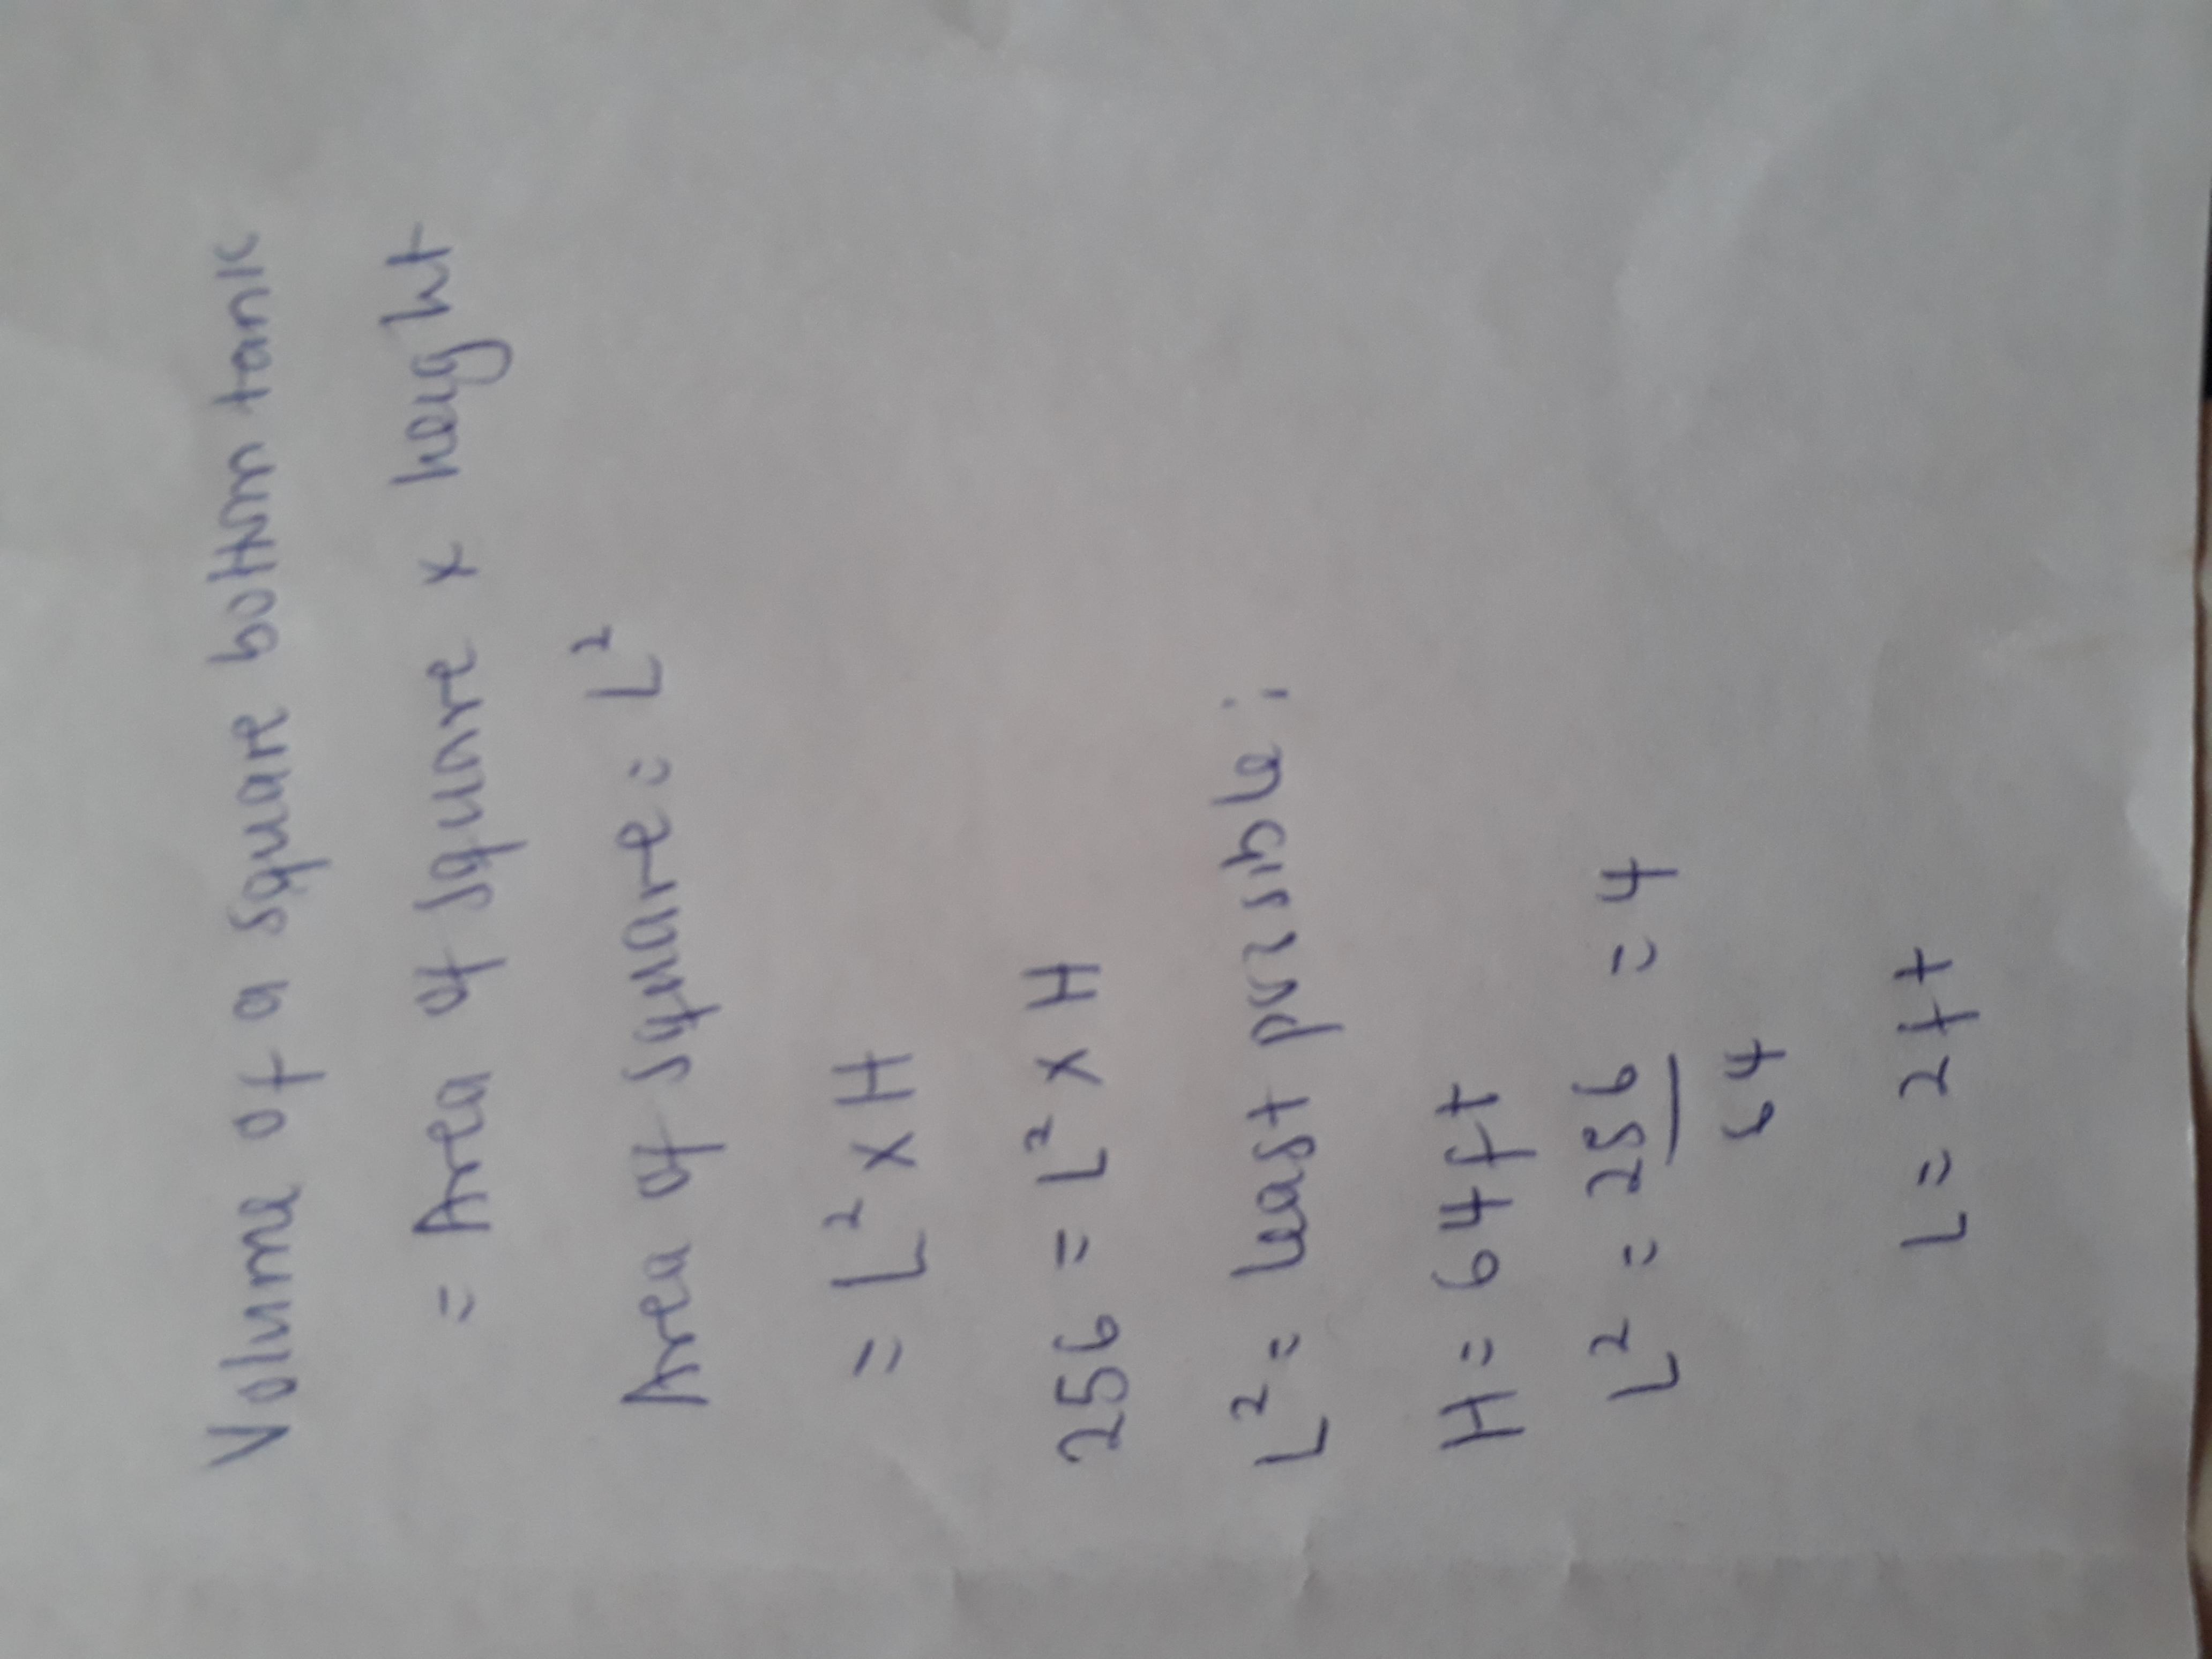 Volume of a square bottom tank
= Area of square x height
Area of square = L²
= L² x H
256 = L² x H
L² = least possible :
H = 64 ft
L² = 256 = 4
64
L = 2 ft